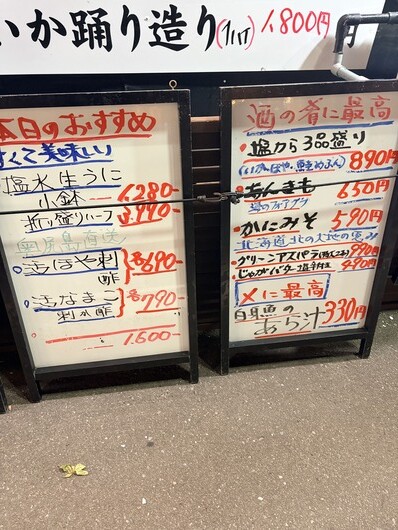 いか踊り造り(1パイ) 1,800円
本日のおすすめ
安くて美味しい
塩水生うに
小鉢 1,280-
折り盛りハーフ 3,990-
奥尻島直送
活ほや 刺 酢 各690-
活なまこ 刺 or 酢 各790-
1,600-
酒の肴に最高
塩から3品盛り
890円
あんきも 650円
海のフォアグラ
かにみそ 590円
北海道 北の大地の恵み
グリーンアスパラ 990円
じゃがバター塩辛 490円
〆に最高
白身魚の
あら汁 330円